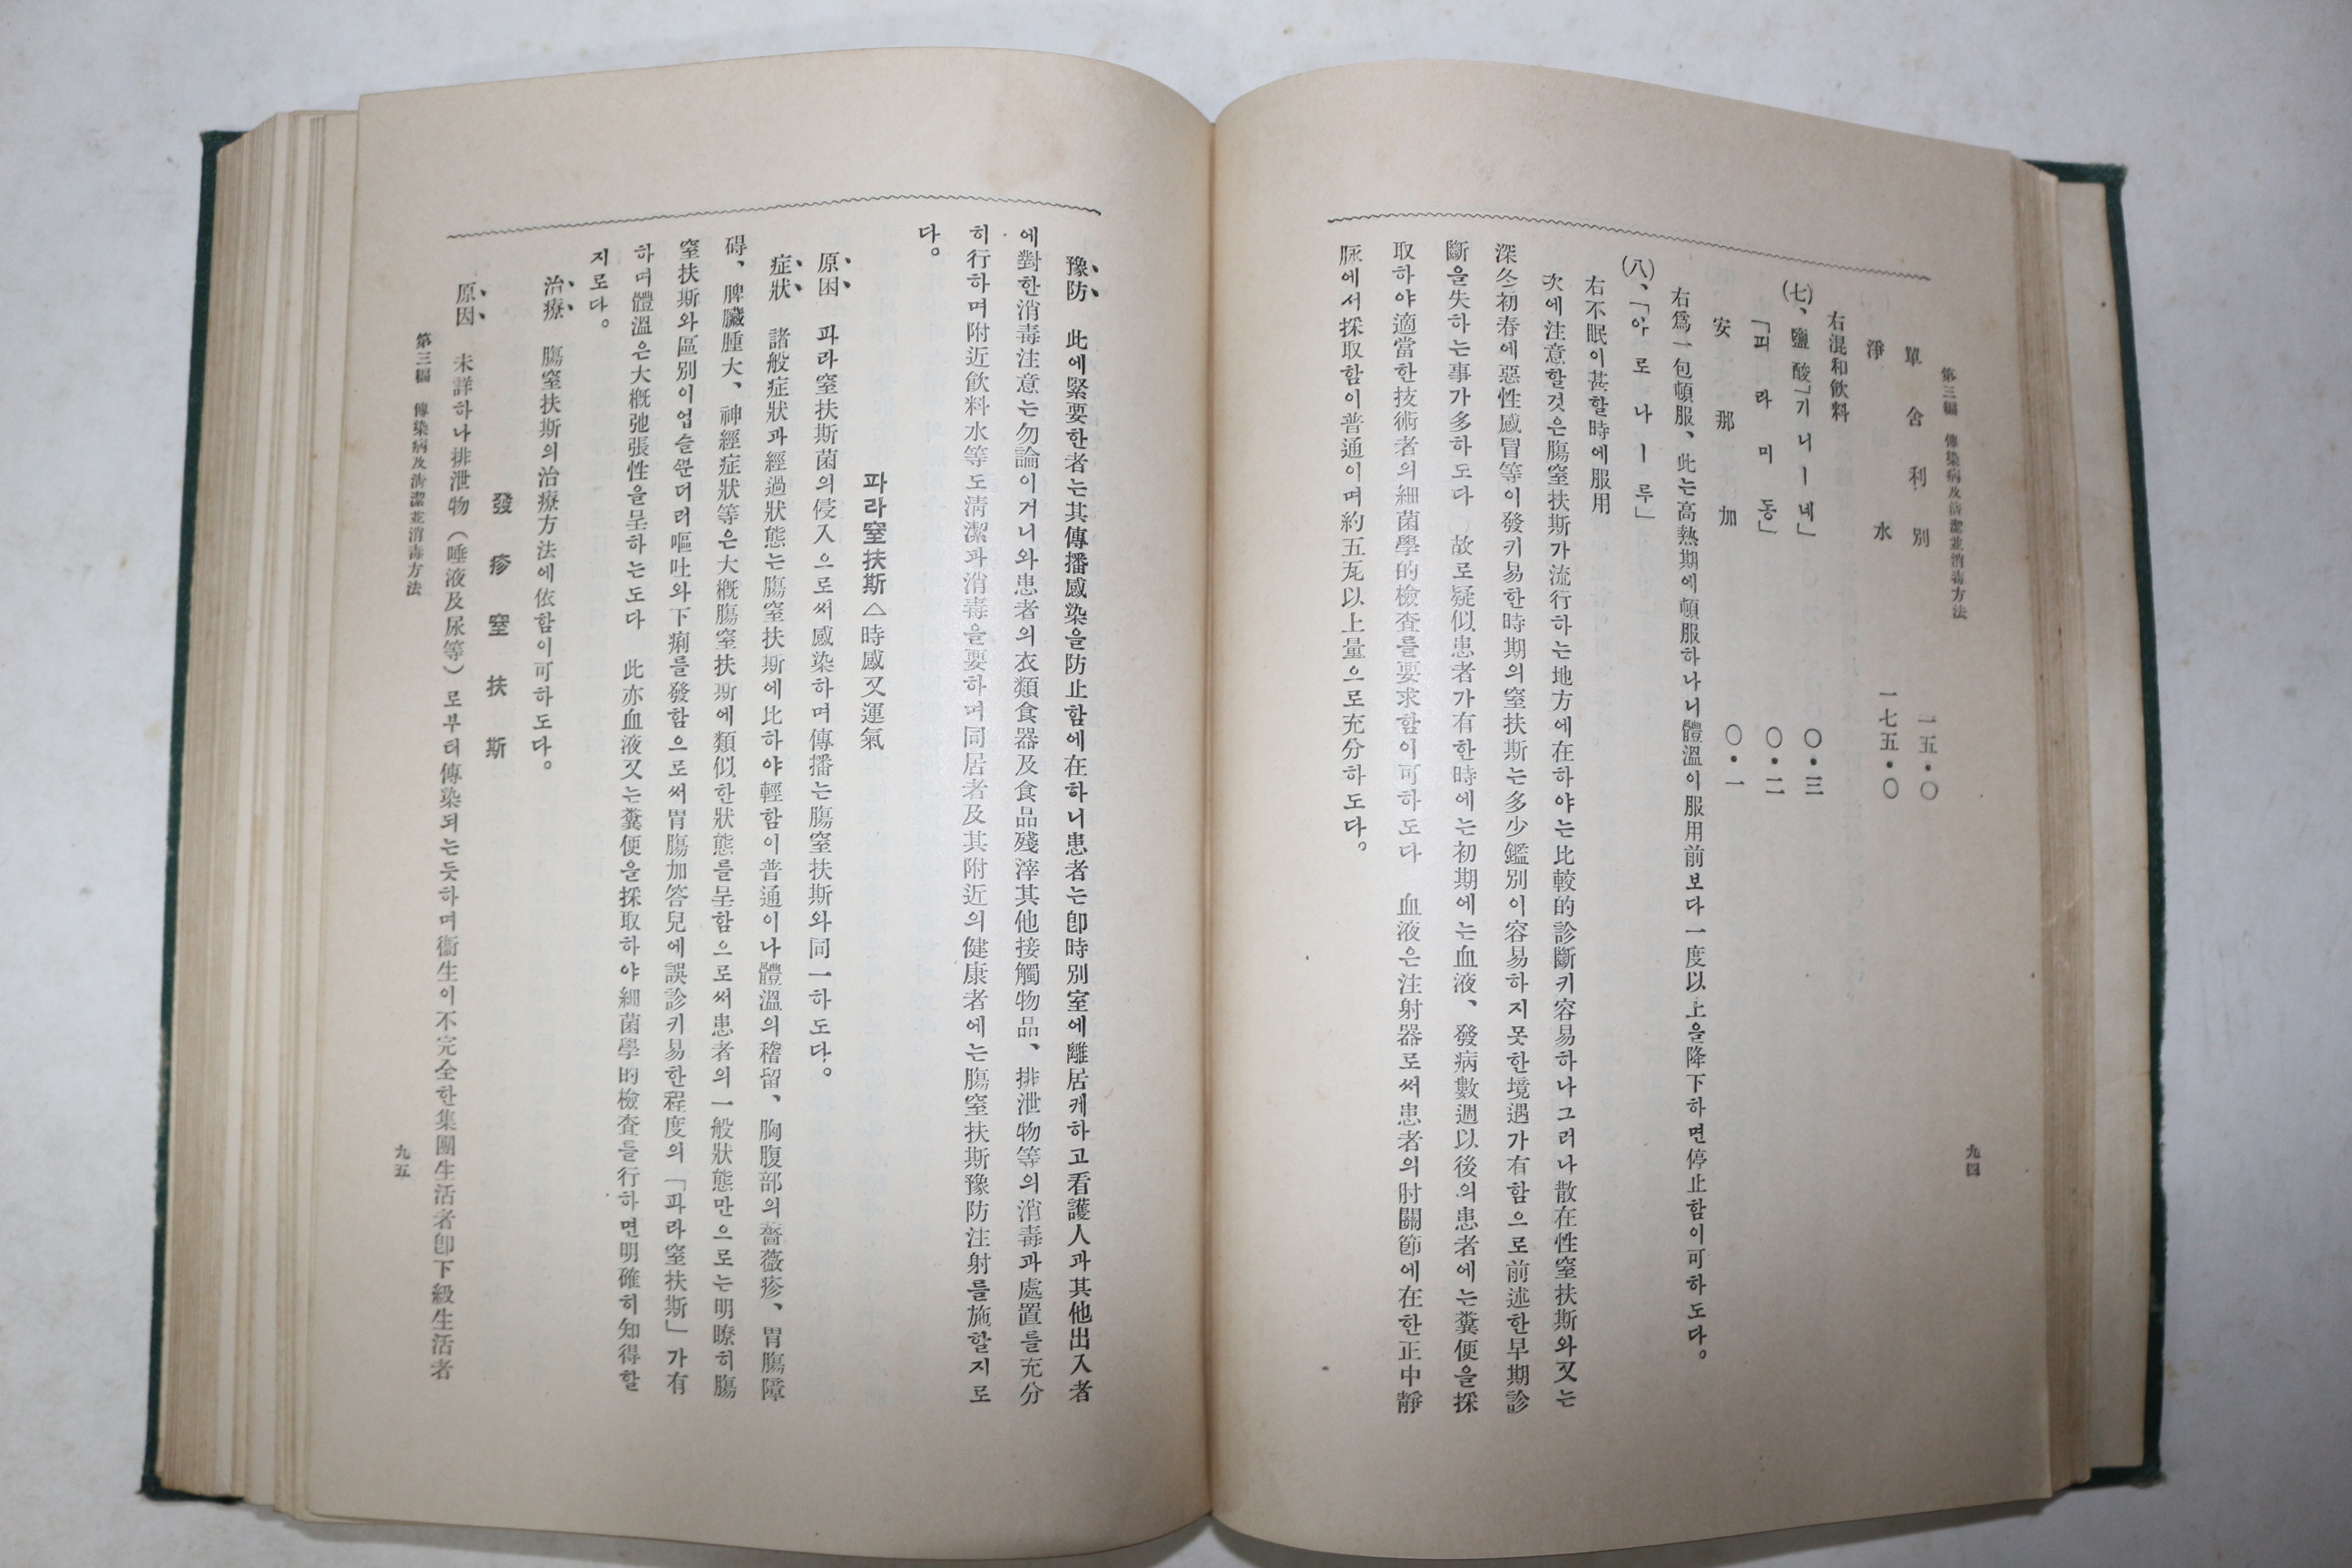 第三編 傳染病及淸潔並消毒方法
九四
單舍利別 一五・〇
淨水 一七五・〇
右混和飮料
(七)、鹽酸「기니ー네」 〇・三
「피라미동」 〇・二
安那加 〇・一
右爲一包頓服、此는高熱期에頓服하나니體溫이服用前보다一度以上을降下하면停止함이可하도다。
(八)、「아로나ー루」
右不眠이甚할時에服用
次에注意할것은膓窒扶斯가流行하는地方에在하야는比較的診斷키容易하나그러나散在性窒扶斯와又는
深冬初春에惡性感冒等이發키易한時期의窒扶斯는多少鑑別이容易하지못한境遇가有함으로前述한早期診
斷을失하는事가多하도다 故로疑似患者가有한時에는初期에는血液、發病數週以後의患者에는糞便을採
取하야適當한技術者의細菌學的檢査를要求함이可하도다 血液은注射器로써患者의肘關節에在한正中靜
脉에서採取함이普通이며約五瓦以上量으로充分하도다。
豫防 此에緊要한者는其傳播感染을防止함에在하니患者는卽時別室에離居케하고看護人과其他出入者
에對한消毒注意는勿論이거니와患者의衣類食器及食品殘滓其他接觸物品、排泄物等의消毒과處置를充分
히行하며附近飮料水等도淸潔과消毒을要하며同居者及其附近의健康者에는膓窒扶斯豫防注射를施할지로
다。
파라窒扶斯△時感又運氣
原因 파라窒扶斯菌의侵入으로써感染하며傳播는膓窒扶斯와同一하도다。
症狀 諸般症狀과經過狀態는膓窒扶斯에比하야輕함이普通이나體溫의稽留、胸腹部의薔薇疹、胃膓障
碍、脾臟腫大、神經症狀等은大槪膓窒扶斯에類似한狀態를呈함으로써患者의一般狀態만으로는明瞭히膓
窒扶斯와區別이업슬뿐더러嘔吐와下痢를發함으로써胃膓加答兒에誤診키易한程度의「파라窒扶斯」가有
하며體溫은大槪弛張性을呈하는도다 此亦血液又는糞便을採取하야細菌學的檢査를行하면明確히知得할
지로다。
治療 膓窒扶斯의治療方法에依함이可하도다。
發疹窒扶斯
原因 未詳하나排泄物(唾液及尿等)로부터傳染되는듯하며衞生이不完全한集團生活者卽下級生活者
第三編 傳染病及淸潔並消毒方法
九五